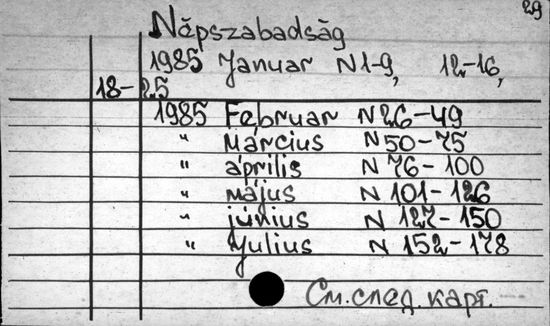 29
Năpszabadság
1985 Januar N1-9, 12-16,
18-25
1985 Februar N26-49
" Március N50-75
" április N76-100
" május N 101-126
" június N 127-150
" Julius N 152-178
См. след. карт.